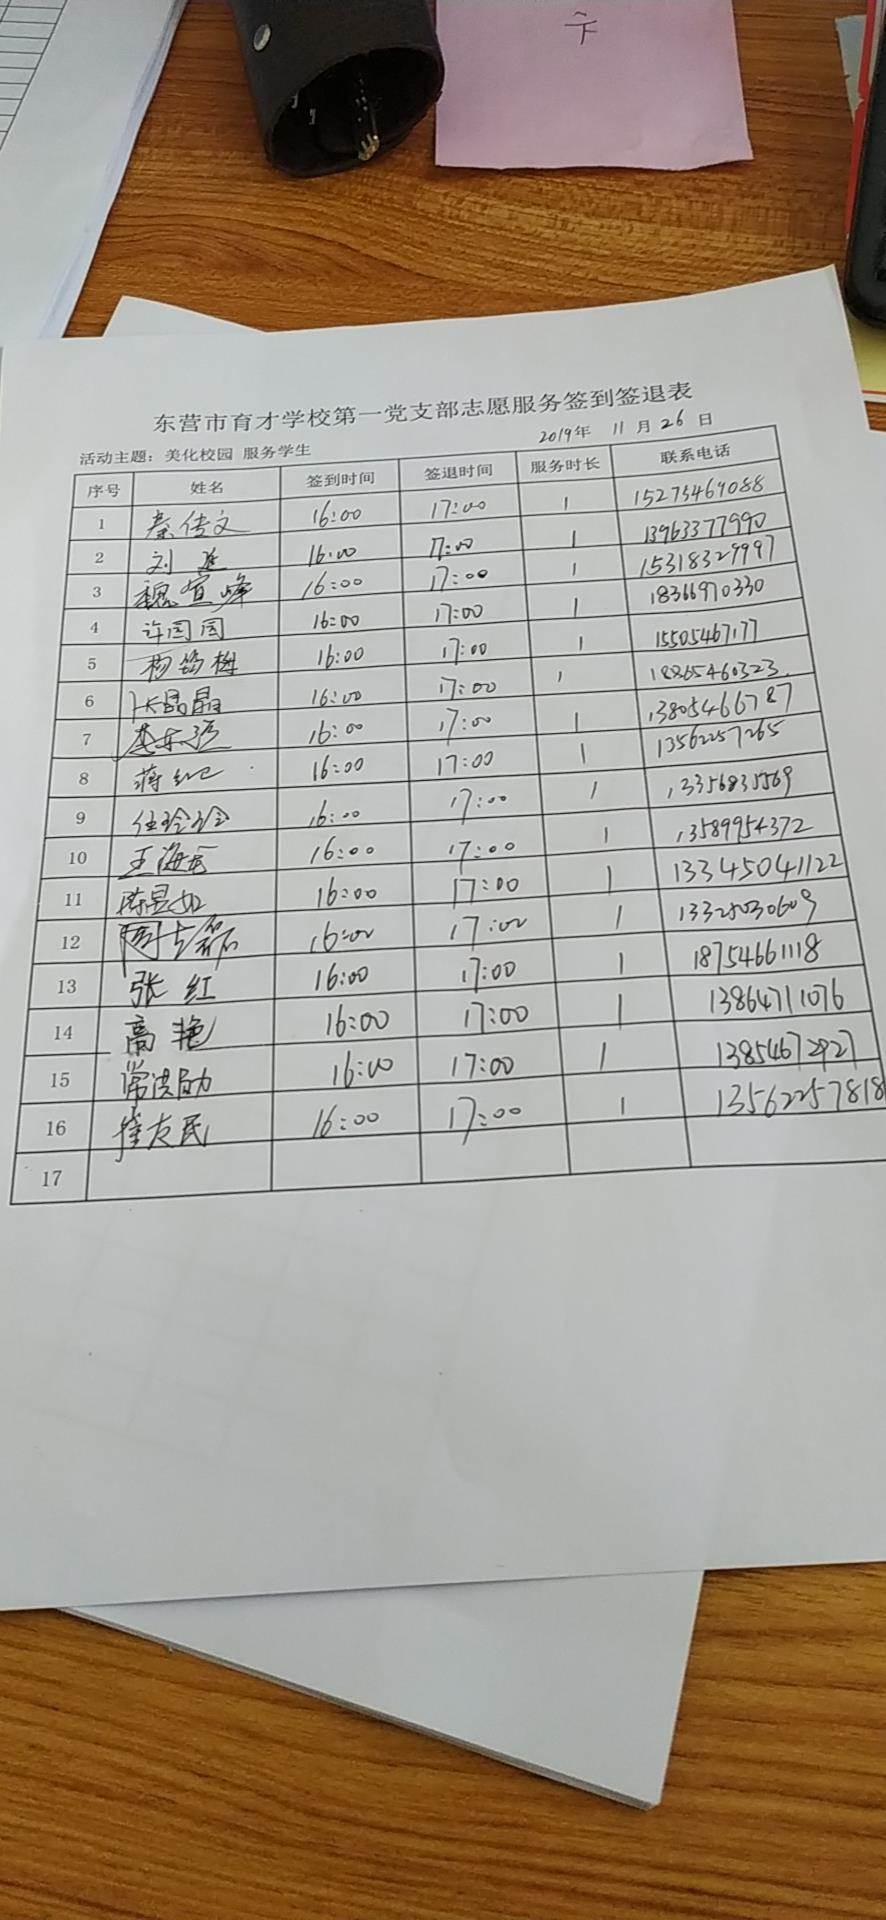 东营市育才学校第一党支部志愿服务签到签退表
活动主题：美化校园 服务学生 2019年 11月26日
序号 姓名 签到时间 签退时间 服务时长 联系电话
1 秦传文 16:00 17:00 1 15273469088
2 刘 16:00 17:00 1 13963377990
3 魏宣峰 16:00 17:00 1 15318329997
4 许园园 16:00 17:00 1 18366970330
5 杨 16:00 17:00 1 15505467177
6 张晶晶 16:00 17:00 1 18865460323
7 16:00 17:00 1 13805466787
8 蒋红卫 16:00 17:00 1 13562257265
9 任玲玲 16:00 17:00 1 13356835569
10 王海 16:00 17:00 1 13589954372
11 陈昱如 16:00 17:00 1 133 45041122
12 周志磊 16:00 17:00 1 13325030609
13 张红 16:00 17:00 1 18754661118
14 高艳 16:00 17:00 1 13864711076
15 常洪勋 16:00 17:00 1 13854672927
16 崔友民 16:00 17:00 1 13562257818
17